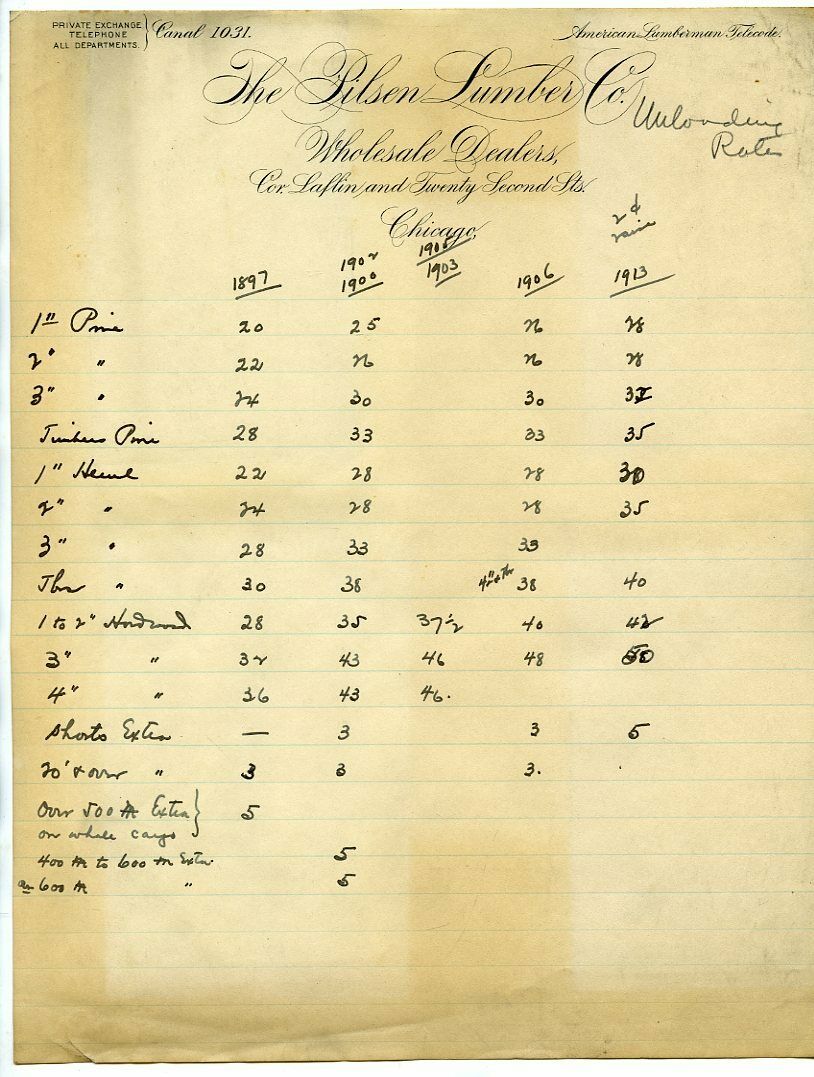 PRIVATE EXCHANGE
TELEPHONE
ALL DEPARTMENTS.
Canal 1031.
American Lumberman Telecode.
The Pilsen Lumber Co.
Unloading
Rates
Wholesale Dealers,
Cor. Laflin and Twenty Second Sts.
Chicago,
2¢
raise
1897 1902 1900 1905 1903 1906 1913
1" Pine 20 25 26 28
2" " 22 26 26 28
3" " 24 30 30 32
Timbers Pine 28 33 33 35
1" Heml 22 28 28 30
2" " 24 28 28 35
3" " 28 33 33
Tbs " 30 38 4" & Tbr 38 40
1 to 2" Hardwood 28 35 37½ 40 42
3" " 32 43 46 48 50
4" " 36 43 46.
Shorts Extra — 3 3 5
20' & over " 3 3 3.
Over 500 M Extra 5
on whole cargo
400 M to 600 M Extra 5
600 M " 5